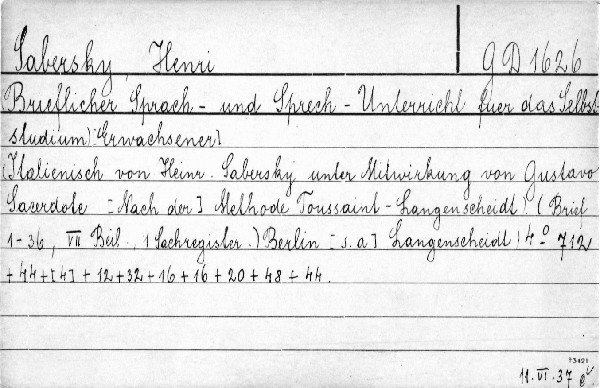 Sabersky, Henri
GD 1626
(Brieflicher Sprach- und Sprech-Unterricht fuer das Selbst-
studium) [Erwachsener]
(Italienisch von Heinr. Sabersky unter Mitwirkung von Gustavo
Sacerdote [Nach der] Methode Toussaint-Langenscheidt) (Brief
1-36, VII Beil., 1 Sachregister.) Berlin [s. a] Langenscheidt) 4° 712
+ 44 + [4] + 12 + 32 + 16 + 16 + 20 + 48 + 44.
F3421
11. VI. 37